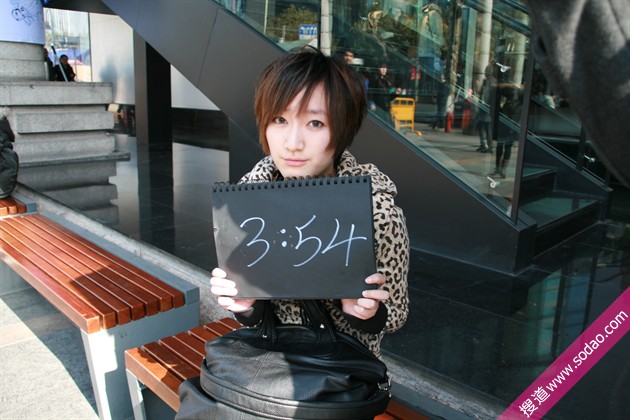 3:54
搜道 www.sodao.com